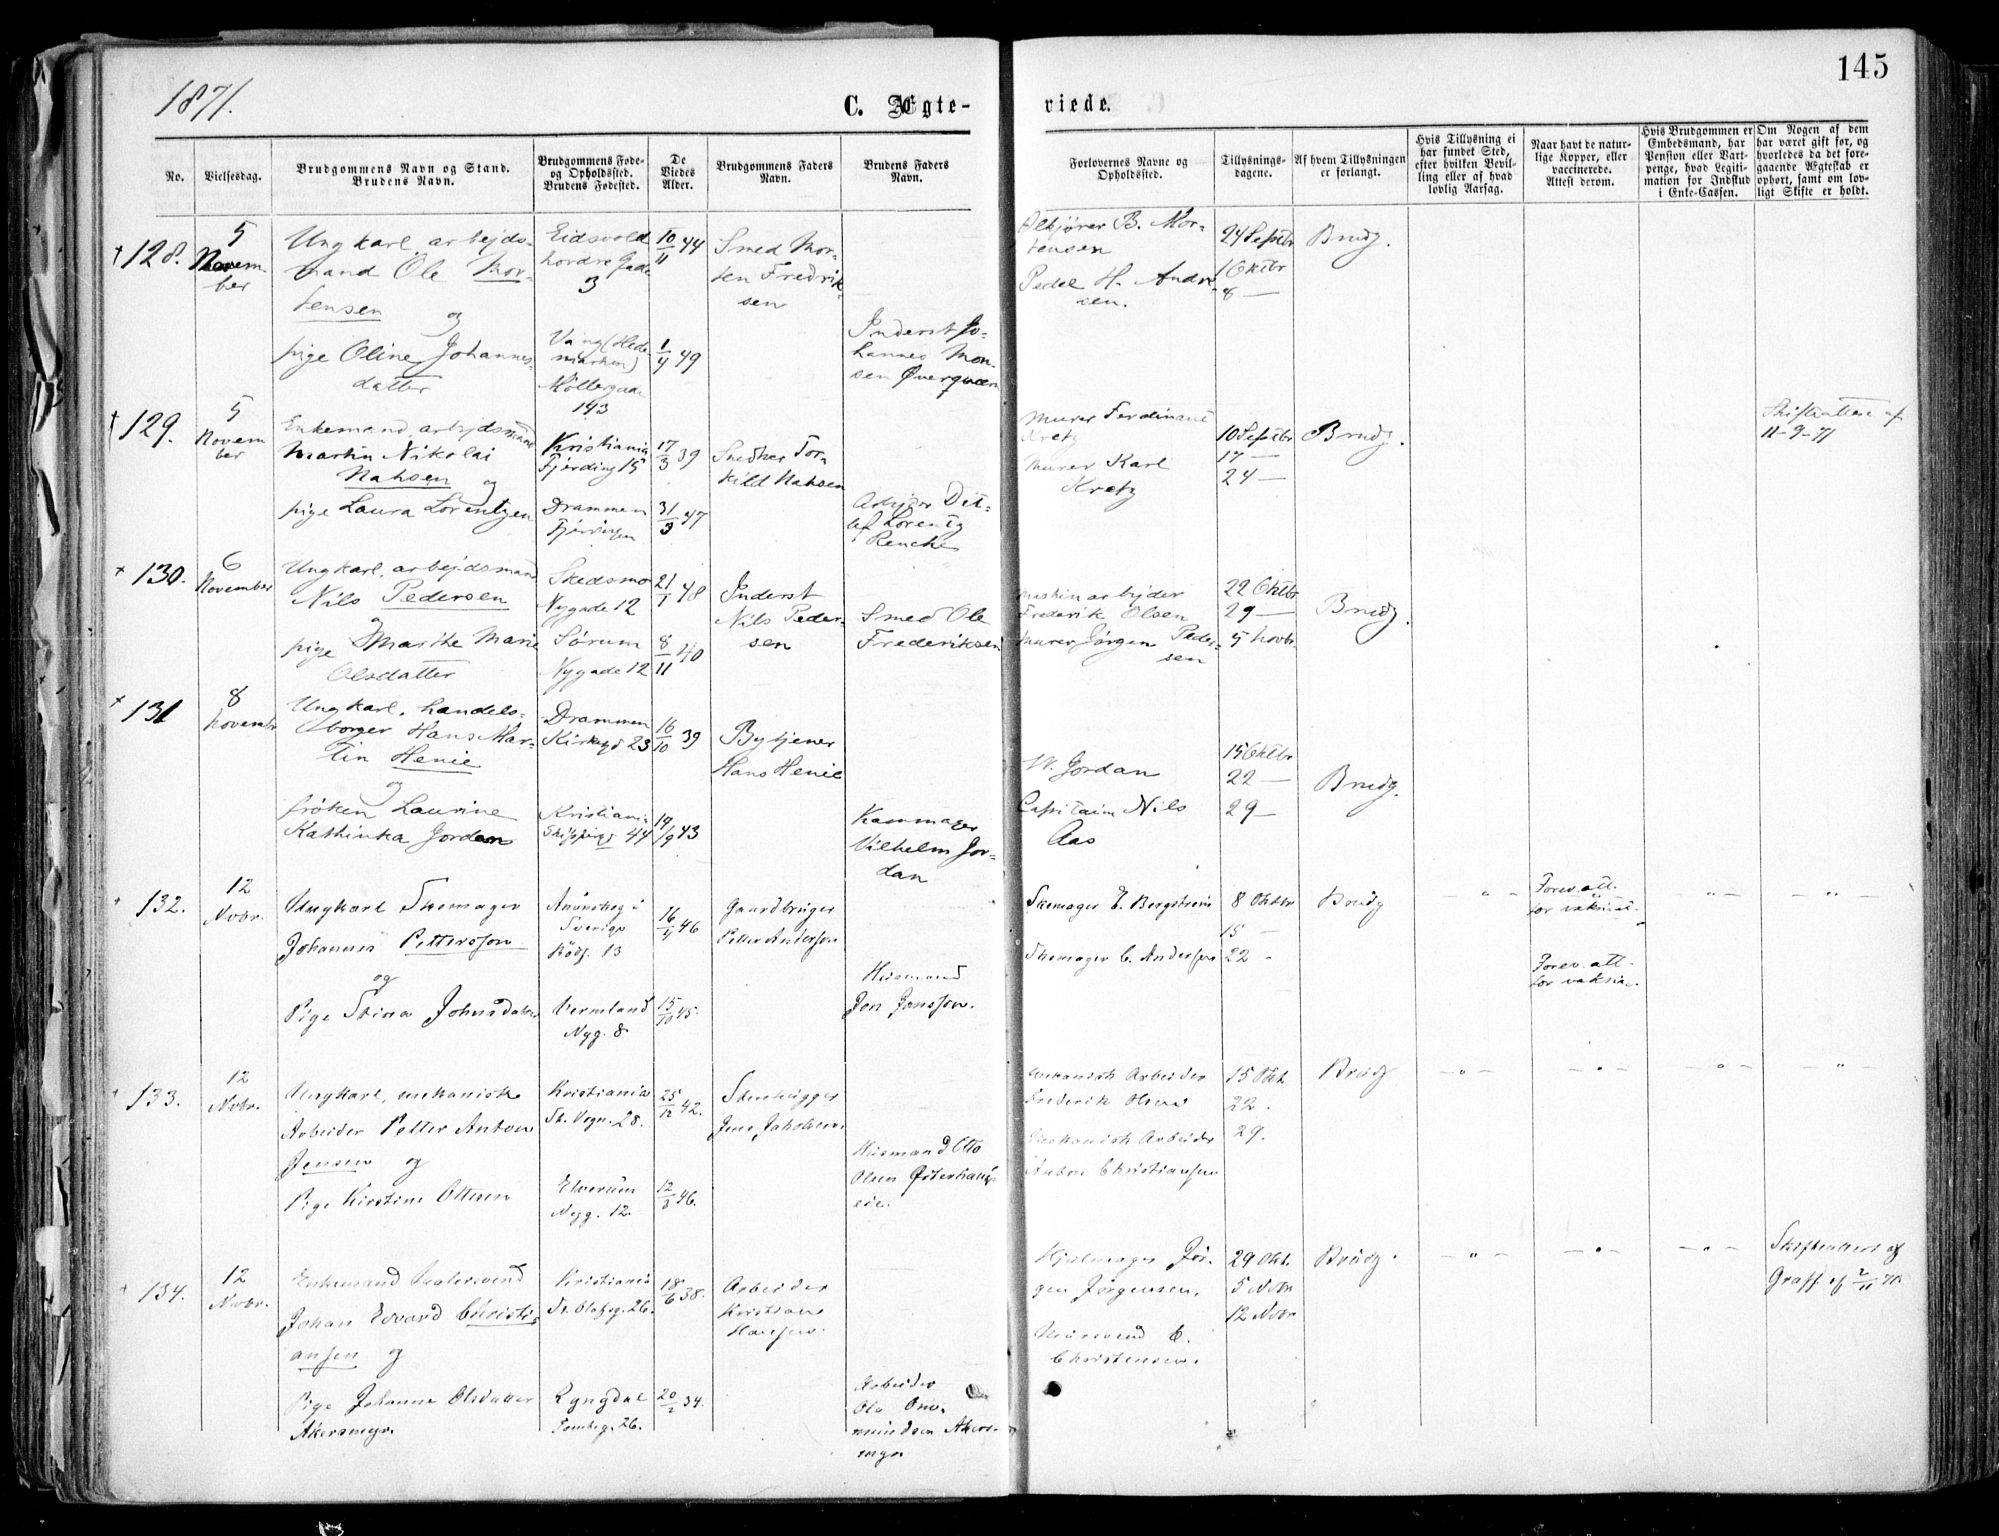 1871.
C. Ægte-
viede.
145
No.
Vielsesdag.
Brudgommens Navn og Stand.
Brudens Navn.
Brudgommens Føde-
og Opholdssted.
Brudens Fødested.
De
Viedes
Alder.
Brudgommens Faders
Navn.
Brudens Faders
Navn.
Forlovernes Navne og
Opholdssted.
Tillysnings-
dagene.
Af hvem Tillysningen
er forlangt.
Hvis Tillysning ei
har fundet Sted,
efter hvilken Bevil-
ling eller af hvad
lovlig Aarsag.
Naar havt de natur-
lige Kopper, eller
vaccinerede.
Attest derom.
Hvis Brudgommen er
Embedsmand, har
Pension eller Vart-
penge, hvad Legiti-
mation for Indskud
i Enke-Cassen.
Om Nogen af dem
har været gift før, og
hvorledes da det fore-
gaaende Ægteskab er
ophørt, samt om lov-
ligt Skifte er holdt.
+ 128.
5
Novem-
ber
Ungkarl, arbejds-
mand Ole Mor-
tensen
og
pige Oline Johannes-
datter
Eidsvold
nordre Gade
3
Vang (Hede-
marken)
Møllergade
193
10/11 44
1/4 49
Smed Mor-
ten Fredrik-
sen
Inderst Jo-
hannes Mon-
sen Øverqvern
B. Mor-
tensen
Pedel H. Andre-
sen.
24 Septbr
1 Oktbr
8 —
Brudg.
+ 129.
5
Novem
ber
Enkemand, arbejdsmand
Martin Nikolai
Nahsen
og
pige Laura Lorentzen
Kristiania
Fjerding 15
Drammen
Fjerdingen
17/3 39
31/3 47
Snedker Tor-
kild Nahsen
Arbejder Dit-
lef Lorentz
Renche
Murer Ferdinant
Kretz
Murer Karl
Kretz
10 Septbr
17 —
24 —
Brudg.
Skifteattest af
11-9-71
+ 130.
6
November
Ungkarl, arbejdsmand
Nils Pedersen
og
pige Marthe Marie
Olsdatter
Skedsmo
Nygade 12
Sørum
Nygade 12
21/1 48
8/11 40
Inderst
Nils Peder-
sen
Smed Ole
Frederiksen
maskinarbejder
Frederik Olsen
Murer Jørgen Peder-
sen
22 Oktbr
29 —
5 Novbr
Brudg.
+ 131
8
Novembr
Ungkarl, handels-
borger Hans Mar-
tin Henie
og
frøken Laurine
Kathinka Jordan
Drammen
Kirkegd 23
Kristiania
Skipperg 44
16/10 39
19/9 43
Bytjener
Hans Henie
Kammager
Vilhelm Jor-
dan
W. Jordan
Capitaim Nils
Aas
15 Oktbr
22 —
29 —
Brudg.
132.
12
Novbr.
Ungkarl Skomager
Johannes Pettersson
og
Pige Stina Johnsdatter
i
Sverige
Rødf. 13
Vermland
Nyg. 8
16/4 46
15/10 45.
Gaardbruger
Petter Andersen
Husmand
Jon Jonsson.
Skomager E. Bergstrøm
Skomager C. Andersen
8 Oktbr
15 —
22 "
Brudg
— " —
Forev. att.
for vaksinat.
Forev. att.
for vaksin.
— " —
— " —
+ 133.
12
Novbr.
Ungkarl, mekanisk
Arbeider Petter Anton
Jensen og
Pige Kirstine Ottesen
Kristiania
St. Vogn. 28.
Elverum
Nyg. 12.
25/12 42.
12/3 46.
Stenhugger
Jens Jakobsen
Husmand Otto
Olsen Østerhaug-
eie.
mekanisk Arbeider
Frederik Olsen
Mekanisk Arbeider
Anton Christiansen
15 Okt.
22.
29.
Brudg
— " —
— " —
— " —
"
+ 134.
12
Novbr.
Enkemand
Johan Edvard Christi-
ansen og
Pige Johanne Olsdatter
Akersmyr.
Kristiania
St. Olafsg. 26.
Lyngdal
Tomteg. 26.
18/6 38.
20/2 34.
Arbeider
Kristian
Hansen.
Arbeider
Ole Om-
mundsen Akers-
myr
Hjulmager Jør-
gen Jørgensen.
Mursvend C.
Christensen.
29 Okt.
5 Novbr
12 Novbr
Brudg.
— " —
— " —
— " —
Skifteattest af
Graff af 2/11 71.